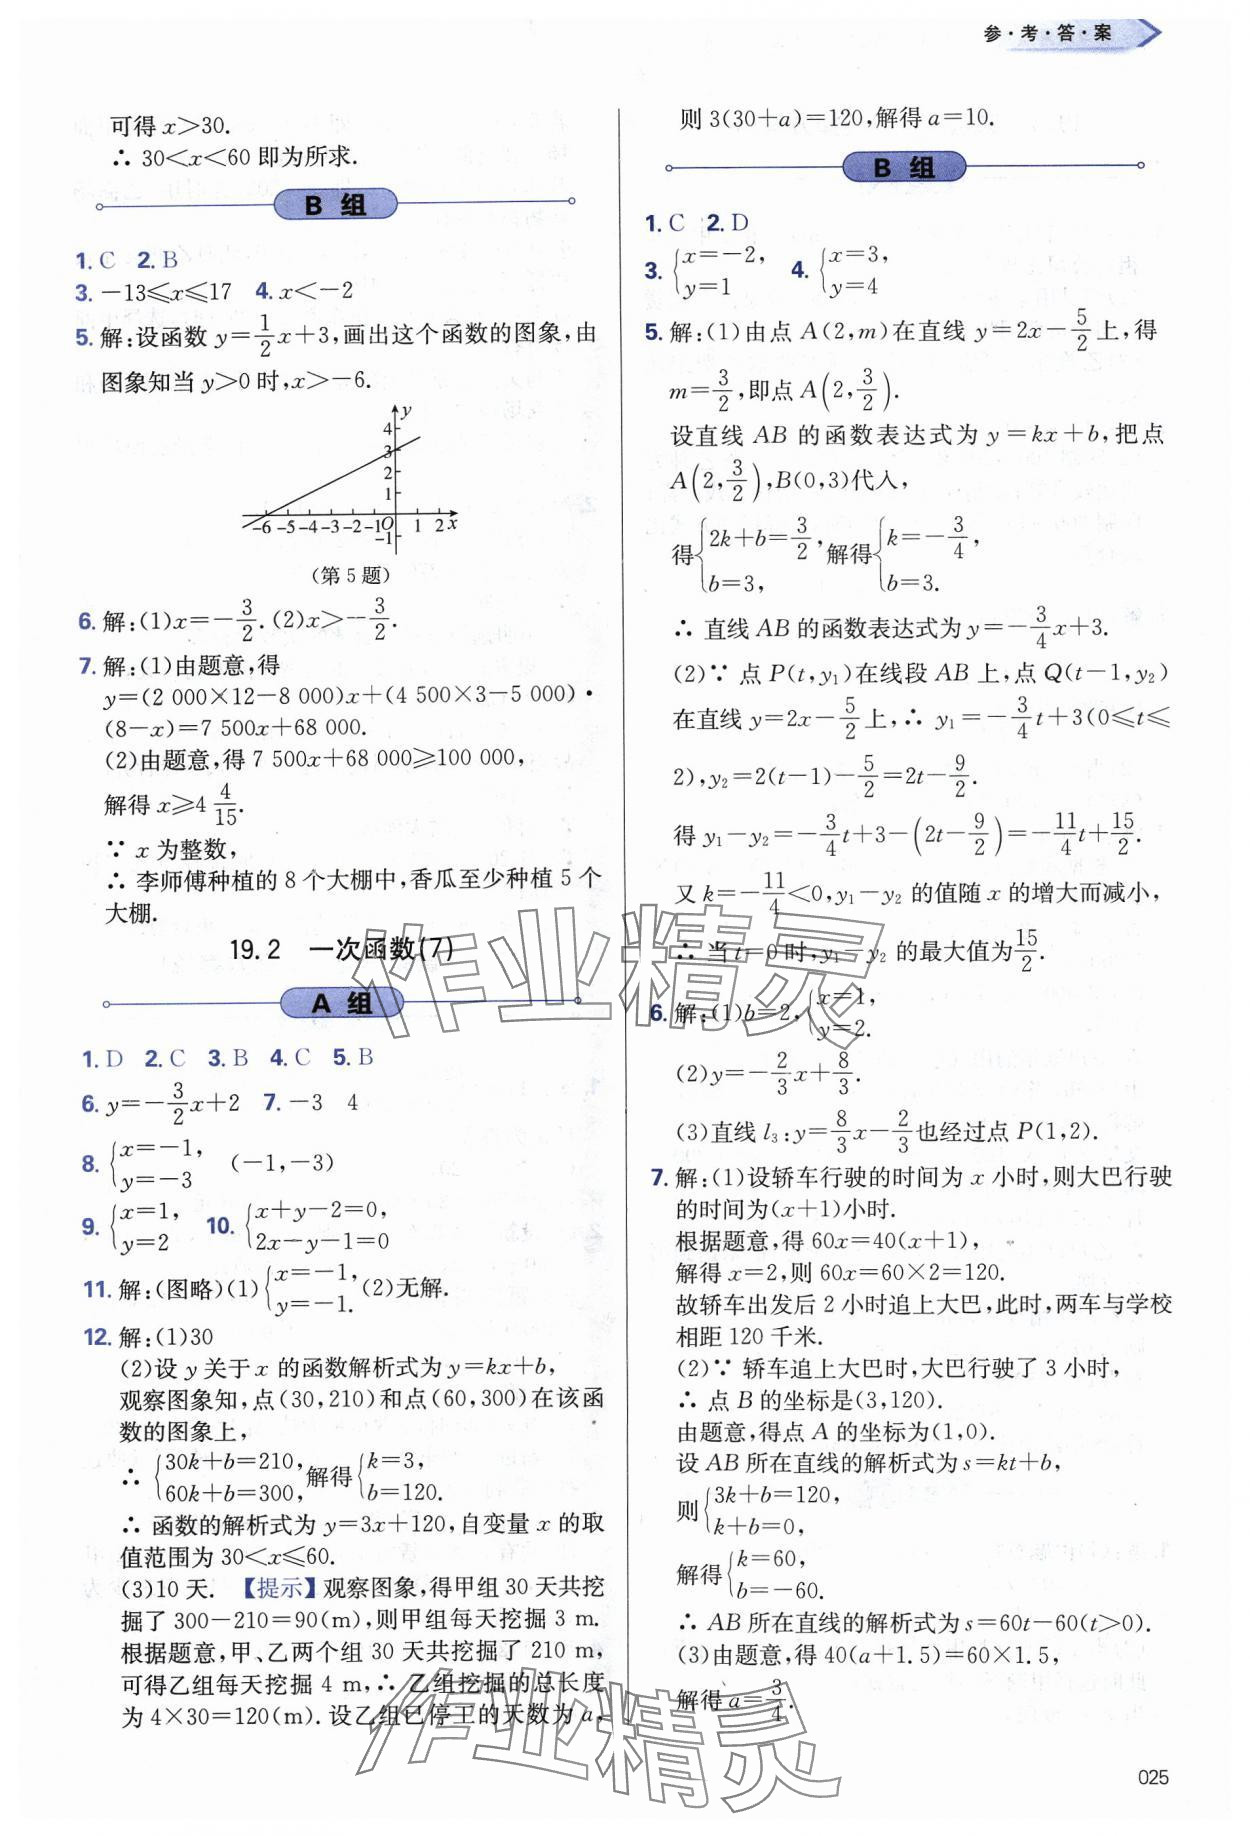 参·考·答·案
可得 x>30.
∴ 30<x<60 即为所求.
B 组
1. C 2. B
3. −13≤x≤17 4. x<−2
5. 解:设函数 y=1/2x+3,画出这个函数的图象,由
图象知当 y>0 时,x>−6.
y
4
3
2
1
−6 −5 −4 −3 −2 −1 O 1 2 x
−1
(第 5 题)
6. 解:(1)x=−3/2. (2)x>−3/2.
7. 解:(1)由题意,得
y=(2 000×12−8 000)x+(4 500×3−5 000)·
(8−x)=7 500x+68 000.
(2)由题意,得 7 500x+68 000≥100 000,
解得 x≥4 4/15.
∵ x 为整数,
∴ 李师傅种植的 8 个大棚中,香瓜至少种植 5 个
大棚.
19.2 一次函数(7)
A 组
1. D 2. C 3. B 4. C 5. B
6. y=−3/2x+2 7. −3 4
8. {x=−1, y=−3 (−1,−3)
9. {x=1, y=2 10. {x+y−2=0, 2x−y−1=0
11. 解:(图略)(1){x=−1, y=−1. (2)无解.
12. 解:(1)30
(2)设 y 关于 x 的函数解析式为 y=kx+b,
观察图象知,点(30,210)和点(60,300)在该函
数的图象上,
∴ {30k+b=210, 60k+b=300, 解得{k=3, b=120.
∴ 函数的解析式为 y=3x+120,自变量 x 的取
值范围为 30<x≤60.
(3)10 天. 【提示】观察图象,得甲组 30 天共挖
掘了 300−210=90(m),则甲组每天挖掘 3 m.
根据题意,甲、乙两个组 30 天共挖掘了 210 m,
可得乙组每天挖掘 4 m,∴ 乙组挖掘的总长度
为 4×30=120(m).设乙组已停工的天数为 a,
则 3(30+a)=120,解得 a=10.
B 组
1. C 2. D
3. {x=−2, y=1 4. {x=3, y=4
5. 解:(1)由点 A(2,m)在直线 y=2x−5/2上,得
m=3/2,即点 A(2,3/2).
设直线 AB 的函数表达式为 y=kx+b,把点
A(2,3/2),B(0,3)代入,
得{2k+b=3/2, b=3, 解得{k=−3/4, b=3.
∴ 直线 AB 的函数表达式为 y=−3/4x+3.
(2)∵ 点 P(t,y₁)在线段 AB 上,点 Q(t−1,y₂)
在直线 y=2x−5/2上,∴ y₁=−3/4t+3(0≤t≤
2),y₂=2(t−1)−5/2=2t−9/2.
得 y₁−y₂=−3/4t+3−(2t−9/2)=−11/4t+15/2.
又 k=−11/4<0,y₁−y₂ 的值随 x 的增大而减小,
∴ 当 t=0 时,y₁−y₂ 的最大值为15/2.
6. 解:(1)b=2,{x=1, y=2.
(2)y=−2/3x+8/3.
(3)直线 l₃:y=8/3x−2/3也经过点 P(1,2).
7. 解:(1)设轿车行驶的时间为 x 小时,则大巴行驶
的时间为(x+1)小时.
根据题意,得 60x=40(x+1),
解得 x=2,则 60x=60×2=120.
故轿车出发后 2 小时追上大巴,此时,两车与学校
相距 120 千米.
(2)∵ 轿车追上大巴时,大巴行驶了 3 小时,
∴ 点 B 的坐标是(3,120).
由题意,得点 A 的坐标为(1,0).
设 AB 所在直线的解析式为 s=kt+b,
则{3k+b=120, k+b=0,
解得{k=60, b=−60.
∴ AB 所在直线的解析式为 s=60t−60(t>0).
(3)由题意,得 40(a+1.5)=60×1.5,
解得 a=3/4.
025
作业精灵
作业精灵